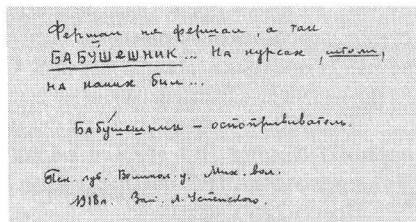 Фершал не фершал, а так
БАБУ́ШЕШНИК... На курсах, штоли,
на каких был...
Бабу́шешник – оспопрививатель.
Пск. губ. Великол. у. Мих. вол.
1918 г. Зап. Л. Успенского.